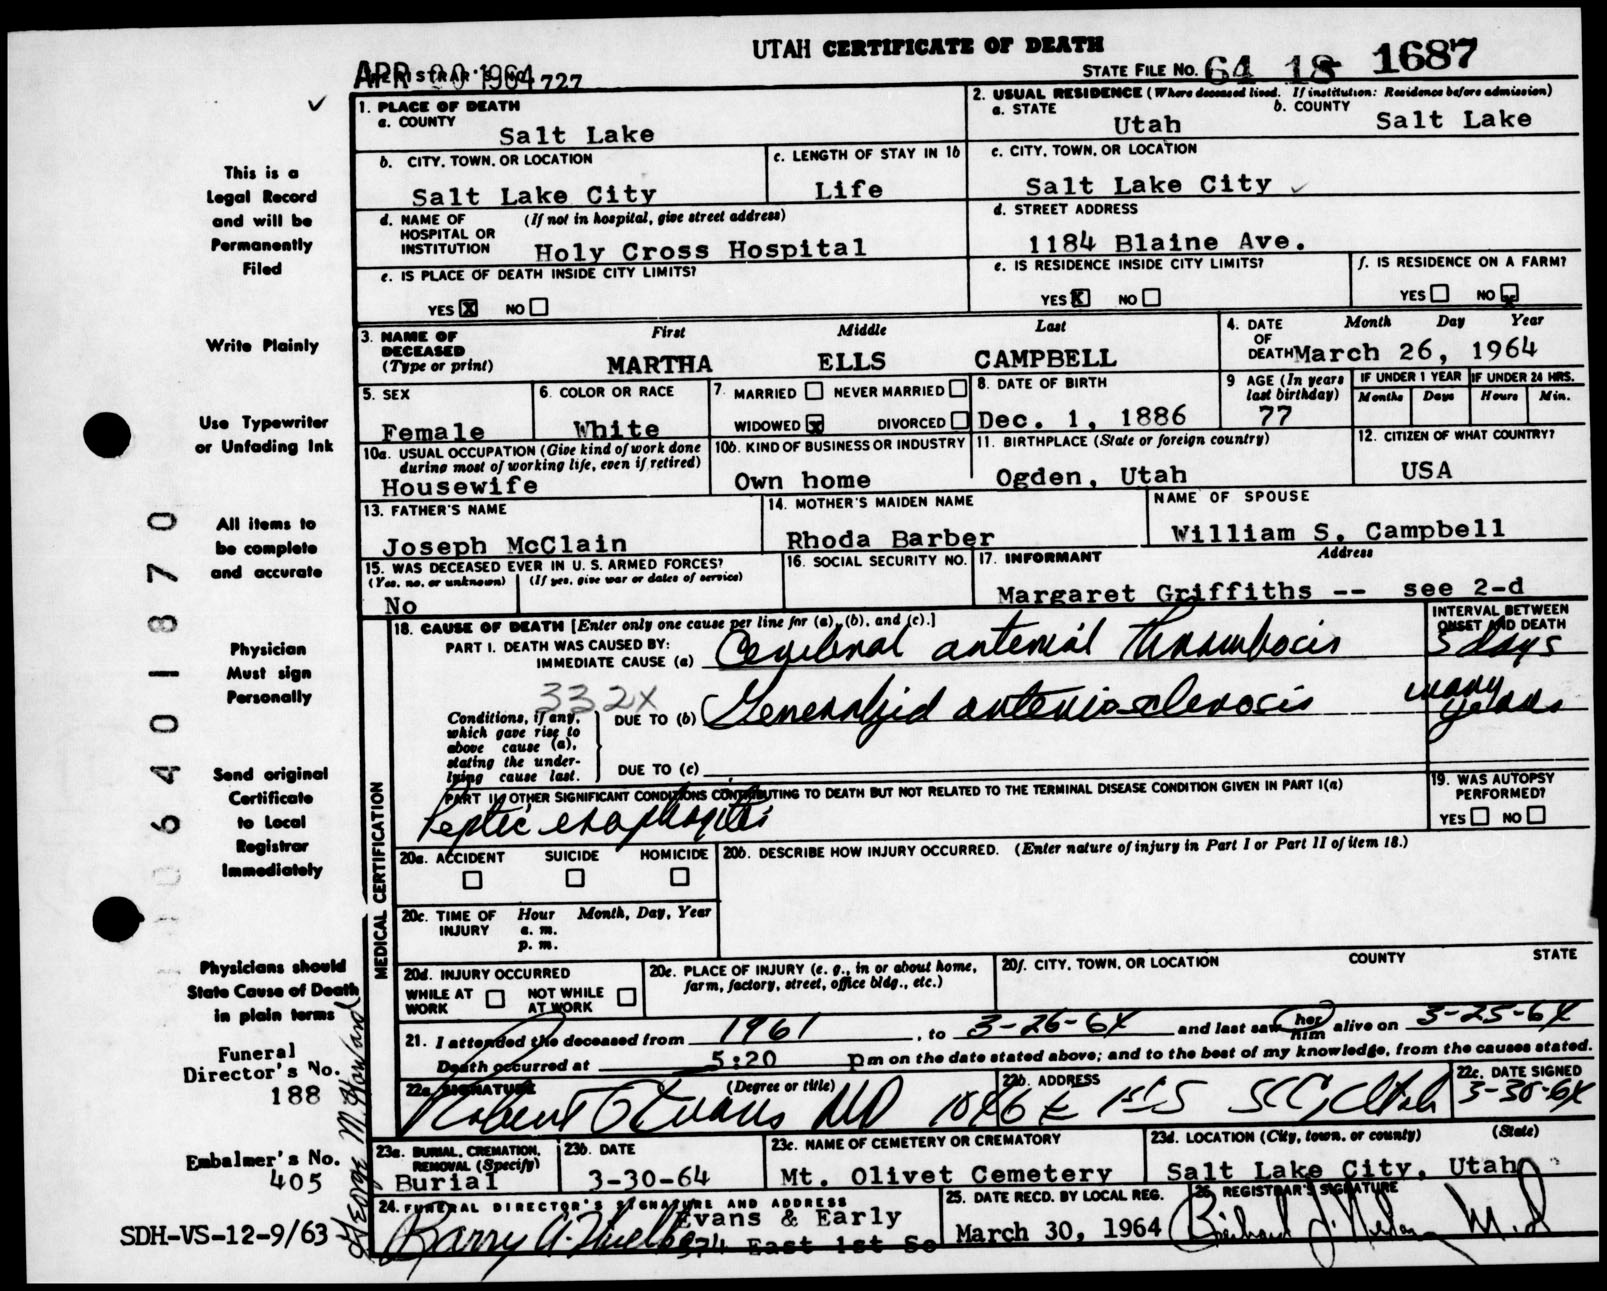 UTAH CERTIFICATE OF DEATH
APR 20 1964 REGISTRAR'S NO. 727
STATE FILE NO. 64 18 1687
✓
1. PLACE OF DEATH
a. COUNTY
Salt Lake
2. USUAL RESIDENCE (Where deceased lived. If institution: Residence before admission)
a. STATE Utah
b. COUNTY Salt Lake
b. CITY, TOWN, OR LOCATION
Salt Lake City
c. LENGTH OF STAY IN 1b
Life
c. CITY, TOWN, OR LOCATION
Salt Lake City ✓
d. NAME OF HOSPITAL OR INSTITUTION (If not in hospital, give street address)
Holy Cross Hospital
d. STREET ADDRESS
1184 Blaine Ave.
e. IS PLACE OF DEATH INSIDE CITY LIMITS?
YES X NO
e. IS RESIDENCE INSIDE CITY LIMITS?
YES X NO
f. IS RESIDENCE ON A FARM?
YES NO X
3. NAME OF DECEASED (Type or print)
First Middle Last
MARTHA ELLS CAMPBELL
4. DATE OF DEATH Month Day Year
March 26, 1964
5. SEX
Female
6. COLOR OR RACE
White
7. MARRIED NEVER MARRIED
WIDOWED X DIVORCED
8. DATE OF BIRTH
Dec. 1, 1886
9 AGE (In years last birthday)
77
IF UNDER 1 YEAR
Months Days
IF UNDER 24 HRS.
Hours Min.
10a. USUAL OCCUPATION (Give kind of work done during most of working life, even if retired)
Housewife
10b. KIND OF BUSINESS OR INDUSTRY
Own home
11. BIRTHPLACE (State or foreign country)
Ogden, Utah
12. CITIZEN OF WHAT COUNTRY?
USA
13. FATHER'S NAME
Joseph McClain
14. MOTHER'S MAIDEN NAME
Rhoda Barber
NAME OF SPOUSE
William S. Campbell
15. WAS DECEASED EVER IN U. S. ARMED FORCES?
(Yes, no, or unknown) (If yes, give war or dates of service)
No
16. SOCIAL SECURITY NO.
17. INFORMANT Address
Margaret Griffiths -- see 2-d
18. CAUSE OF DEATH [Enter only one cause per line for (a), (b), and (c).]
INTERVAL BETWEEN ONSET AND DEATH
PART I. DEATH WAS CAUSED BY:
IMMEDIATE CAUSE (a) Cerebral arterial thrombosis 5 days
332X
Conditions, if any, which gave rise to above cause (a), stating the underlying cause last.
DUE TO (b) Generalized arteriosclerosis many years
DUE TO (c)
PART II. OTHER SIGNIFICANT CONDITIONS CONTRIBUTING TO DEATH BUT NOT RELATED TO THE TERMINAL DISEASE CONDITION GIVEN IN PART I(a)
Peptic esophagitis
19. WAS AUTOPSY PERFORMED?
YES NO
20a. ACCIDENT SUICIDE HOMICIDE
20b. DESCRIBE HOW INJURY OCCURRED. (Enter nature of injury in Part I or Part II of item 18.)
20c. TIME OF INJURY Hour Month, Day, Year
a. m.
p. m.
20d. INJURY OCCURRED
WHILE AT WORK NOT WHILE AT WORK
20e. PLACE OF INJURY (e. g., in or about home, farm, factory, street, office bldg., etc.)
20f. CITY, TOWN, OR LOCATION COUNTY STATE
21. I attended the deceased from 1961, to 3-26-64 and last saw her him alive on 3-25-64
Death occurred at 5:20 p m on the date stated above; and to the best of my knowledge, from the causes stated.
22a. SIGNATURE (Degree or title)
Robert Evans MD
22b. ADDRESS
1046 E 1st S SLC, Utah
22c. DATE SIGNED
3-30-64
23a. BURIAL, CREMATION, REMOVAL (Specify)
Burial
23b. DATE
3-30-64
23c. NAME OF CEMETERY OR CREMATORY
Mt. Olivet Cemetery
23d. LOCATION (City, town, or county) (State)
Salt Lake City, Utah
24. FUNERAL DIRECTOR'S SIGNATURE AND ADDRESS
Evans & Early
Barry A. 574 East 1st So
25. DATE RECD. BY LOCAL REG.
March 30, 1964
26. REGISTRAR'S SIGNATURE
M.D.
MEDICAL CERTIFICATION
This is a
Legal Record
and will be
Permanently
Filed
Write Plainly
Use Typewriter
or Unfading Ink
All items to
be complete
and accurate
Physician
Must sign
Personally
Send original
Certificate
to Local
Registrar
Immediately
Physicians should
State Cause of Death
in plain terms
Funeral
Director's No.
188
Embalmer's No.
405
George M. Howard
SDH-VS-12-9/63
06401870